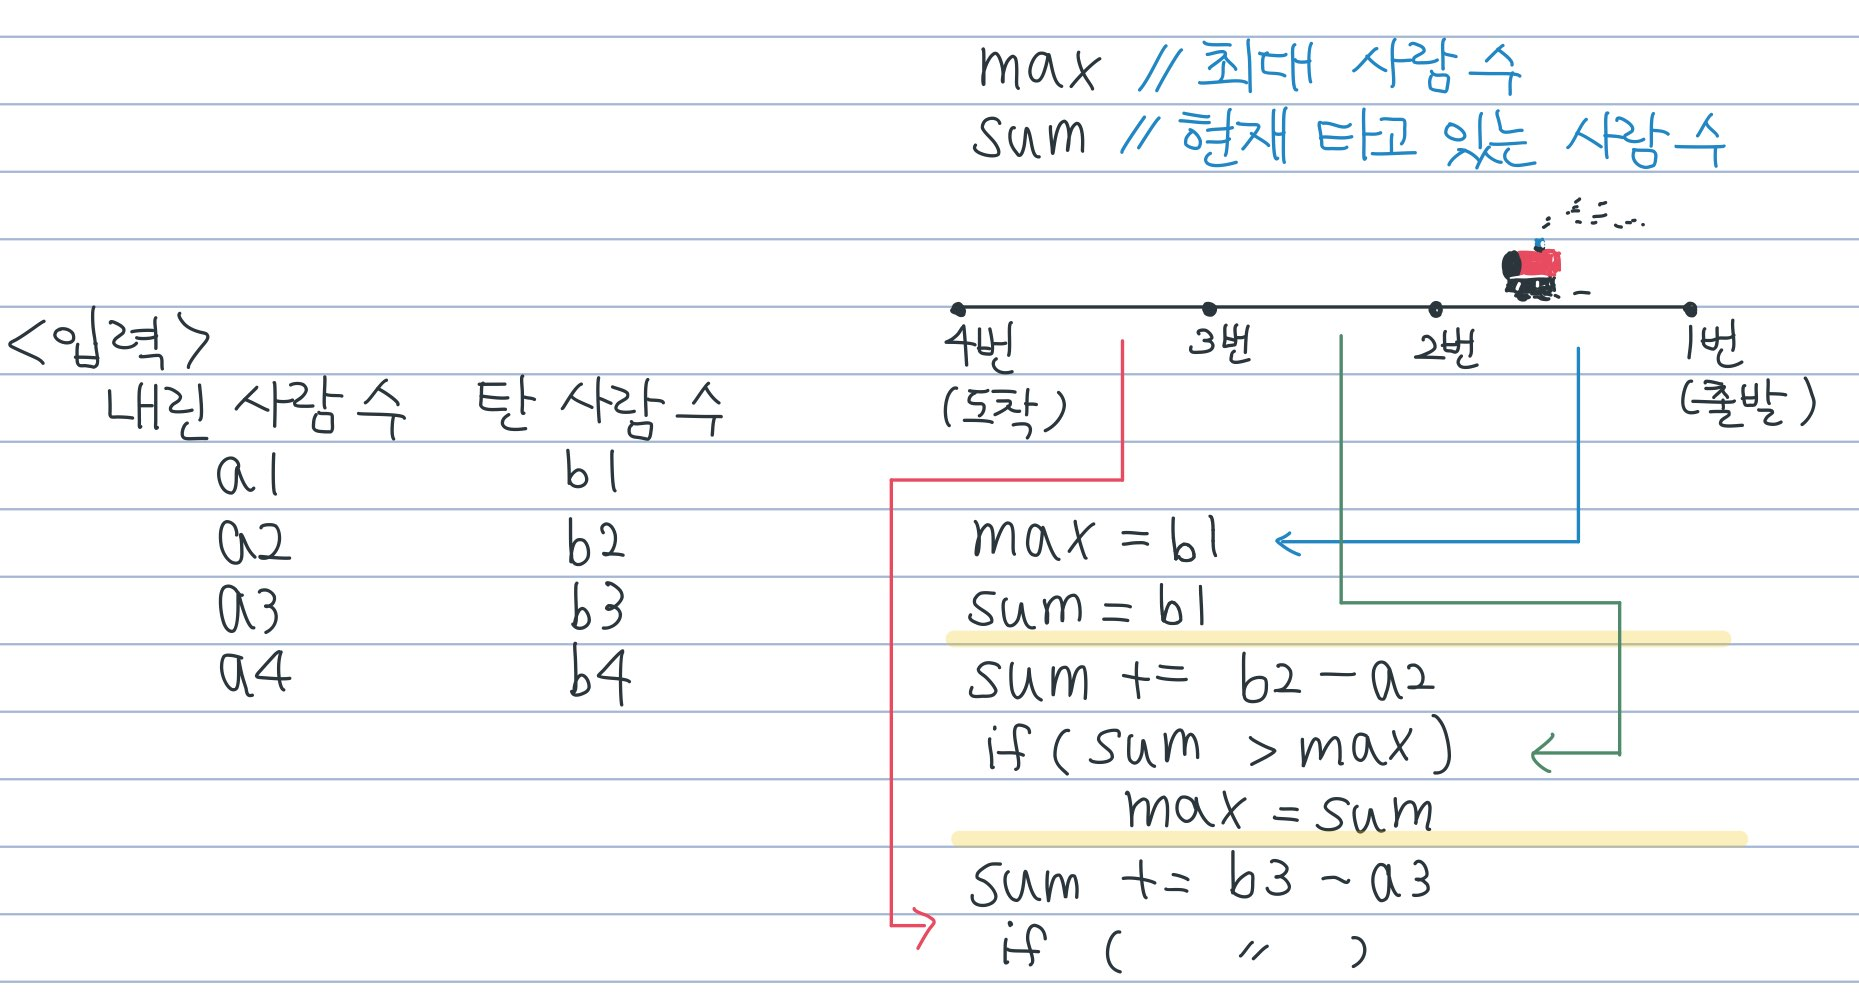 max // 최대 사람 수
sum // 현재 타고 있는 사람 수
4번 3번 2번 1번
(도착) (출발)
<입력>
내린 사람 수 탄 사람 수
a1 b1
a2 b2
a3 b3
a4 b4
max = b1
sum = b1
sum += b2 - a2
if (sum > max)
max = sum
sum += b3 - a3
if ( 〃 )